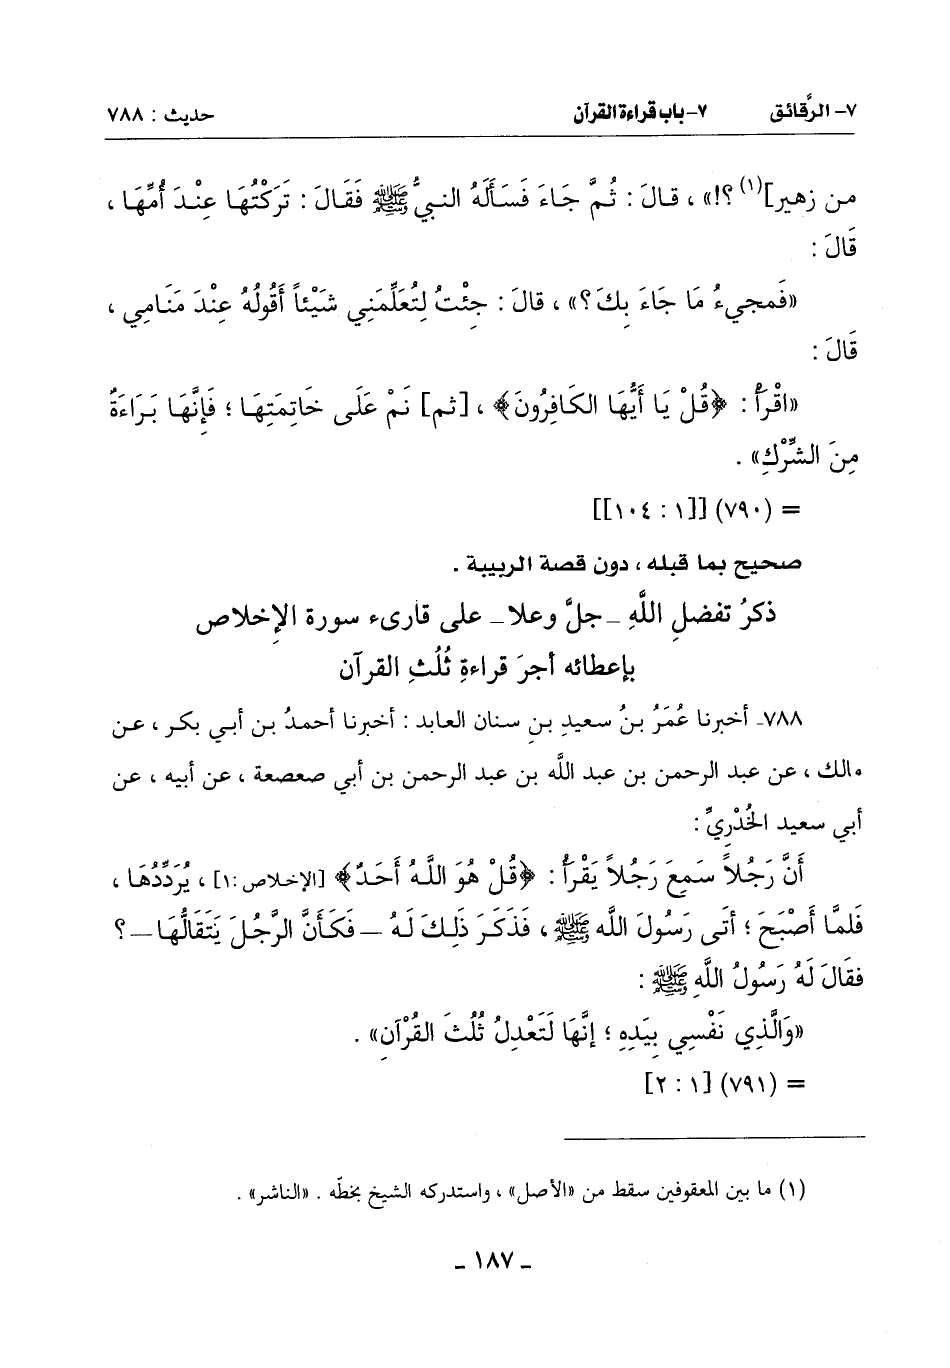 ٧- الرَّقائق ٧- باب قراءة القرآن حديث : ٧٨٨
من زهير](١)؟!» ، قالَ : ثُمَّ جَاءَ فَسَأَلَهُ النبيُّ ﷺ فَقَالَ : تَرَكْتُهَا عِنْدَ أُمِّهَا ،
قَالَ :
«فَمجيءُ مَا جَاءَ بِكَ؟» ، قالَ : جِئْتُ لِتُعَلِّمَنِي شَيْئاً أَقُولُهُ عِنْدَ مَنَامِي ،
قَالَ :
«اقْرَأْ : ﴿قُلْ يَا أَيُّهَا الكَافِرُونَ﴾ ، [ثم] نَمْ عَلَى خَاتِمَتِهَا ؛ فَإِنَّهَا بَرَاءَةٌ
مِنَ الشِّرْكِ» .
= (٧٩٠) [[١ : ١٠٤]]
صحيح بما قبله ، دون قصة الربيبة .
ذكرُ تفضلِ اللَّهِ ـ جلَّ وعلا ـ على قارىء سورة الإخلاص
بإعطائه أجرَ قراءةِ ثُلُثِ القرآن
٧٨٨ـ أخبرنا عُمَرُ بنُ سعيدِ بنِ سنان العابد : أخبرنا أحمدُ بن أبي بكر ، عن
مالك ، عن عبد الرحمن بن عبد اللَّه بن عبد الرحمن بن أبي صعصعة ، عن أبيه ، عن
أبي سعيد الخُدْرِيِّ :
أَنَّ رَجُلاً سَمِعَ رَجُلاً يَقْرَأُ : ﴿قُلْ هُوَ اللَّهُ أَحَدٌ﴾ [الإخلاص :١] ، يُرَدِّدُهَا ،
فَلَمَّا أَصْبَحَ ؛ أَتَى رَسُولَ اللَّه ﷺ ، فَذَكَرَ ذَلِكَ لَهُ ــ فَكَأَنَّ الرَّجُلَ يَتَقَالُّهَا ــ ؟
فقَالَ لَهُ رَسُولُ اللَّهِ ﷺ :
«وَالَّذِي نَفْسِي بِيَدِهِ ؛ إِنَّهَا لَتَعْدِلُ ثُلُثَ القُرْآنِ» .
= (٧٩١) [١ : ٢]
(١) ما بين المعقوفين سقط من «الأصل» ، واستدركه الشيخ بخطّه . «الناشر» .
ـ ١٨٧ ـ